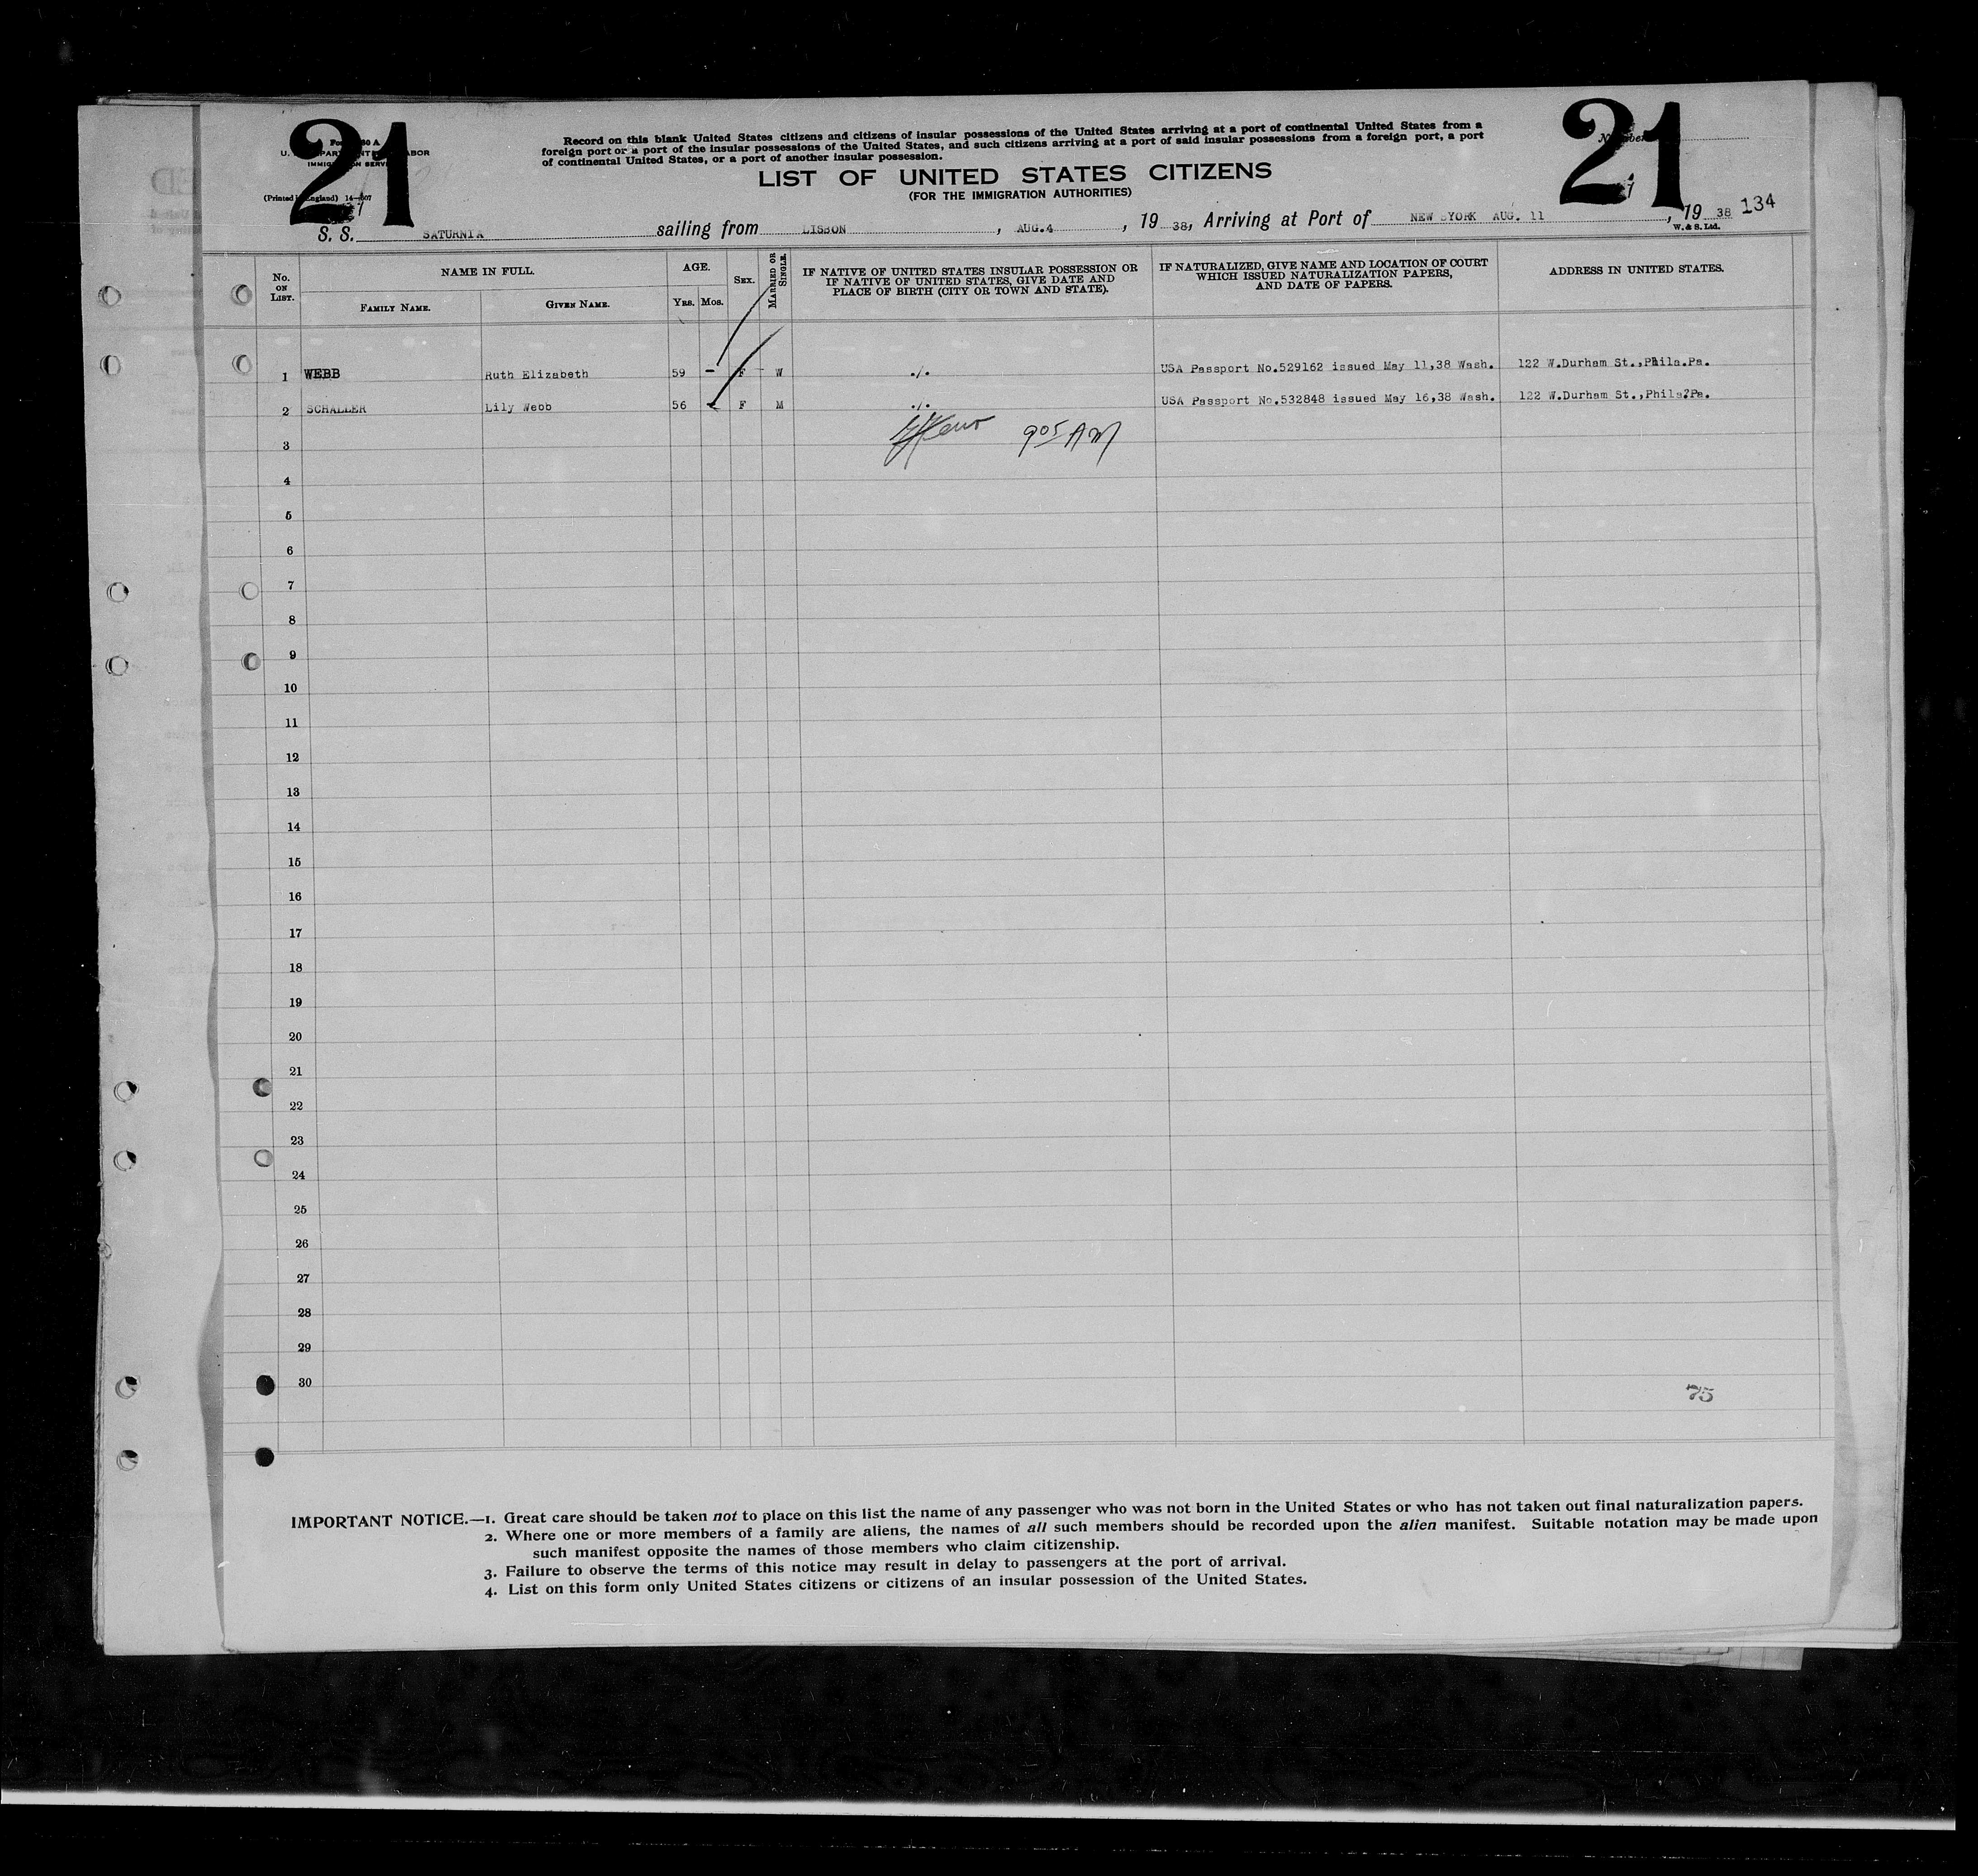 21
21
Record on this blank United States citizens and citizens of insular possessions of the United States arriving at a port of continental United States from a
foreign port or a port of the insular possessions of the United States, and such citizens arriving at a port of said insular possessions from a foreign port, a port
of continental United States, or a port of another insular possession.
LIST OF UNITED STATES CITIZENS
(FOR THE IMMIGRATION AUTHORITIES)
S. S. SATURNIA sailing from LISBON, AUG.4, 19 38, Arriving at Port of NEW YORK AUG. 11, 19 38 134
W. & S. Ltd.
No. ON LIST.
NAME IN FULL.
FAMILY NAME.
GIVEN NAME.
AGE.
YRS. MOS.
SEX.
MARRIED OR SINGLE.
IF NATIVE OF UNITED STATES INSULAR POSSESSION OR
IF NATIVE OF UNITED STATES, GIVE DATE AND
PLACE OF BIRTH (CITY OR TOWN AND STATE).
IF NATURALIZED, GIVE NAME AND LOCATION OF COURT
WHICH ISSUED NATURALIZATION PAPERS,
AND DATE OF PAPERS.
ADDRESS IN UNITED STATES.
1 WEBB Ruth Elizabeth 59 – F W ./. USA Passport No.529162 issued May 11,38 Wash. 122 W.Durham St.,Phila.Pa.
2 SCHALLER Lily Webb 56 F M ./. USA Passport No.532848 issued May 16,38 Wash. 122 W.Durham St.,Phila?Pa.
905 AM
3
4
5
6
7
8
9
10
11
12
13
14
15
16
17
18
19
20
21
22
23
24
25
26
27
28
29
30
75
IMPORTANT NOTICE.—1. Great care should be taken not to place on this list the name of any passenger who was not born in the United States or who has not taken out final naturalization papers.
2. Where one or more members of a family are aliens, the names of all such members should be recorded upon the alien manifest. Suitable notation may be made upon
such manifest opposite the names of those members who claim citizenship.
3. Failure to observe the terms of this notice may result in delay to passengers at the port of arrival.
4. List on this form only United States citizens or citizens of an insular possession of the United States.